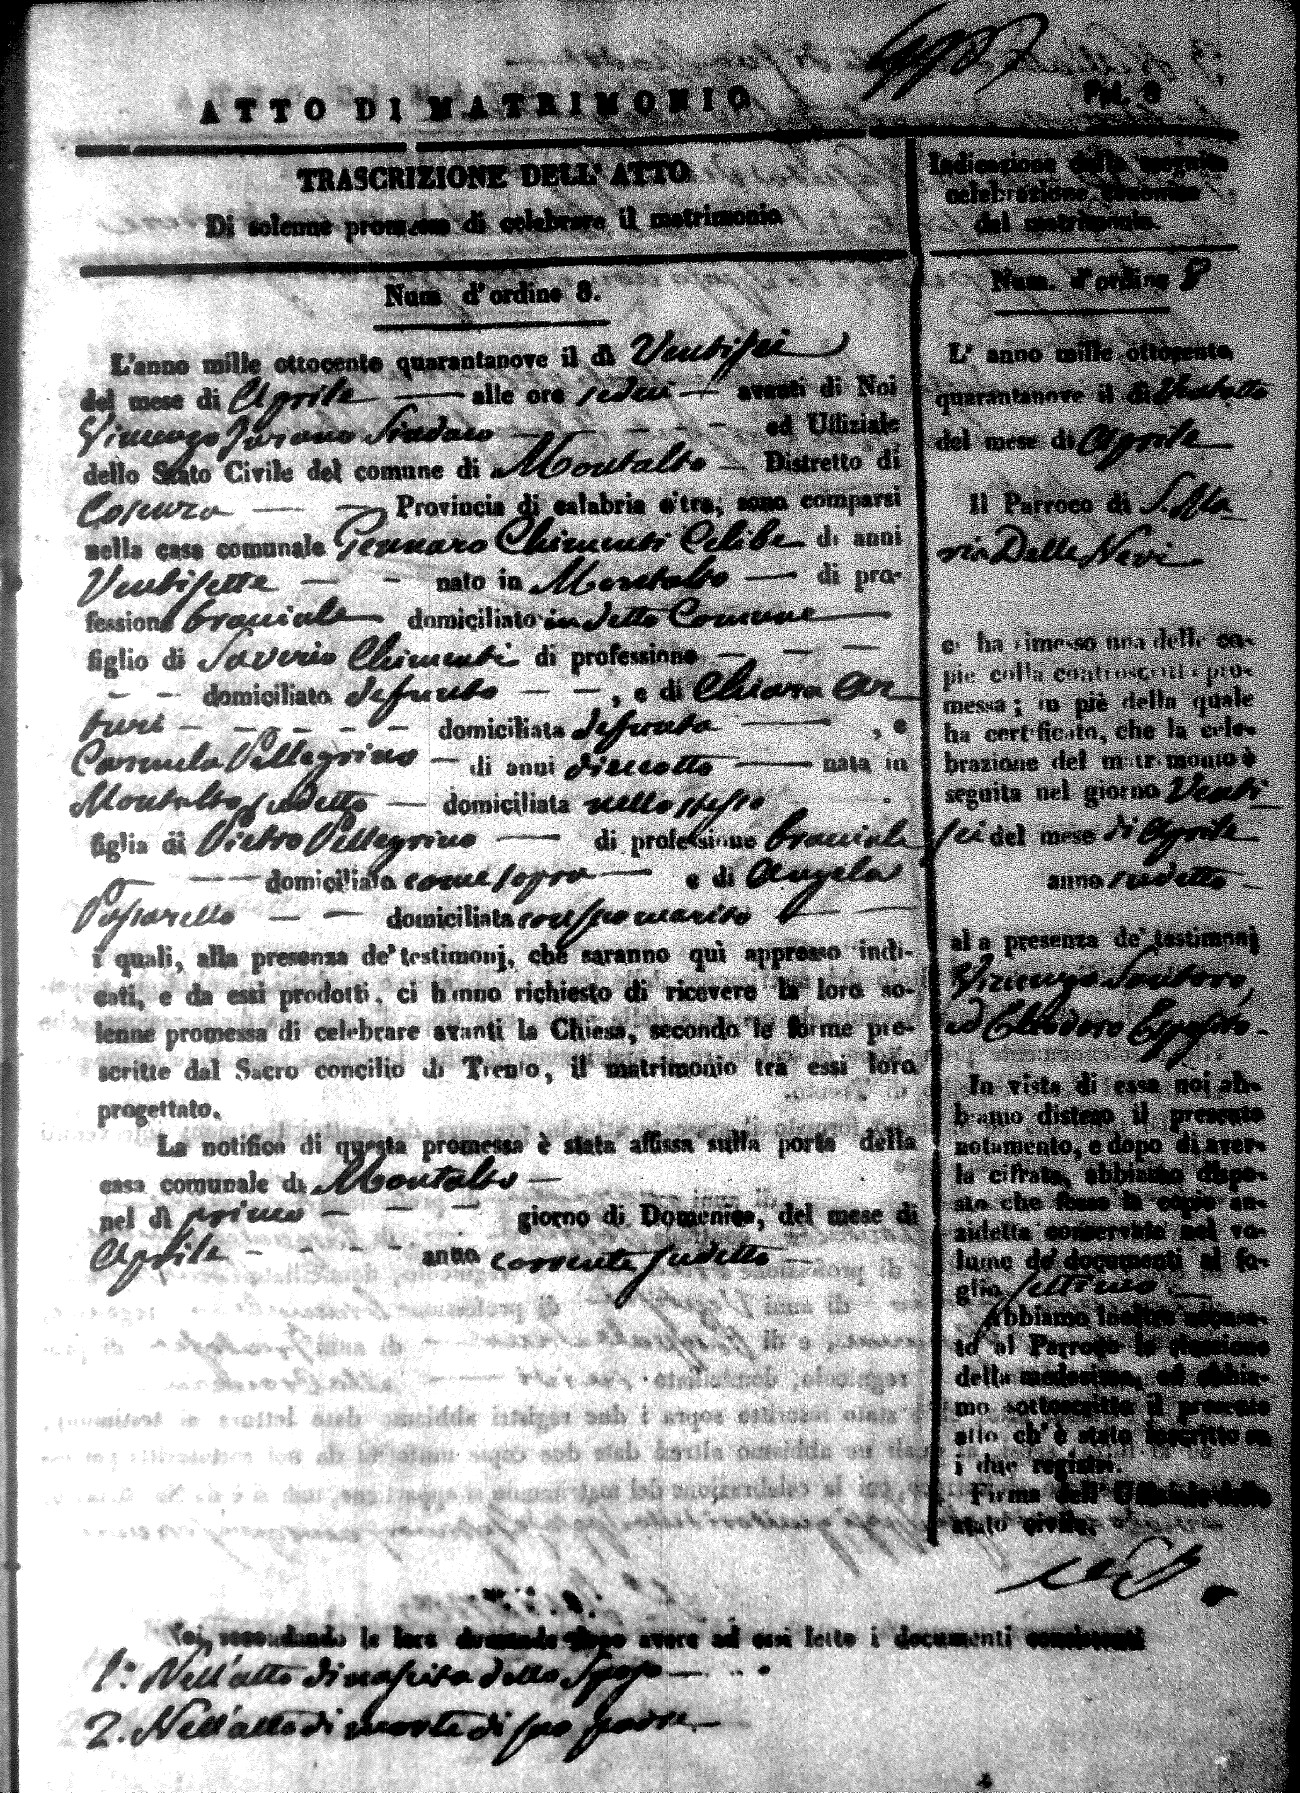 ATTO DI MATRIMONIO
Fol. 8
TRASCRIZIONE DELL' ATTO
Di solenne promessa di celebrare il matrimonio
Num d'ordine 8.
L'anno mille ottocento quarantanove il dì Ventisei
del mese di Aprile — alle ore sedici — avanti di Noi
Vincenzo Sindaco — ed Uffiziale
dello Stato Civile del comune di Montalto — Distretto di
Cosenza — Provincia di calabria citra, sono comparsi
nella casa comunale Gennaro Chimenti Celibe di anni
Ventisette — nato in Montalto — di pro-
fessione bracciale domiciliato in detto Comune
figlio di Saverio Chimenti di professione — — —
— — domiciliato defunto — —, e di Chiara An
turi — domiciliata defunta —, e
Carmela Pellegrino — di anni dieciotto — nata in
Montalto sudetto — domiciliata nello stesso
figlia di Pietro Pellegrino — di professione bracciale
— domiciliato come sopra — e di Angela
Passarello — domiciliata con suo marito
i quali, alla presenza de' testimonj, che saranno quì appresso indi-
cati, e da essi prodotti, ci hanno richiesto di ricevere la loro so-
lenne promessa di celebrare avanti la Chiesa, secondo le forme pre-
scritte dal Sacro concilio di Trento, il matrimonio tra essi loro
progettato.
La notifica di questa promessa è stata affissa sulla porta della
casa comunale di Montalto —
nel dì primo — — — giorno di Domenica, del mese di
Aprile — — — — anno corrente sudetto —
Noi, secondando le loro domande dopo avere ad essi letto i documenti consistenti
1.° Nell'atto di nascita dello Sposo —
2. Nell'atto di morte di suo padre —
Indicazione della seguita
celebrazione canonica
del matrimonio.
Num. d'ordine 8
L' anno mille ottocento
quarantanove il dì Ventotto
del mese di Aprile
Il Parroco di S. Ma
ria Delle Nevi
ci ha rimesso una delle co-
pie colla controscritta pro-
messa; in piè della quale
ha certificato, che la cele-
brazione del matrimonio è
seguita nel giorno Venti
sei del mese di Aprile
anno sudetto —
alla presenza de' testimonj
Vincenzo Santoro,
ed Teodoro Esposito —
In vista di essa noi ab-
biamo disteso il presente
notamento, e dopo di aver-
la cifrata, abbiamo dispo-
sto che fosse la copia an-
zidetta conservata nel vo-
lume de' documenti al fo-
glio settimo —
Abbiamo inoltre accusa-
to al Parroco la ricezione
della medesima, ed abbia-
mo sottoscritto il presente
atto ch'è stato inscritto su
i due registri.
Firma dell' Uffiziale dello
stato civile,